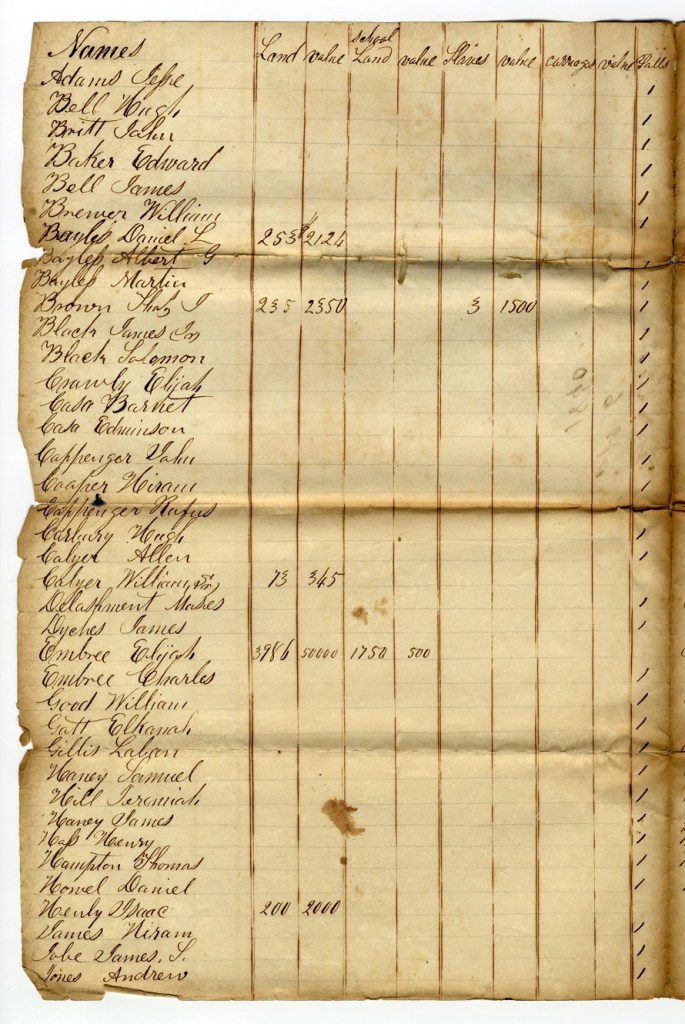 Names Land value school Land value Slaves value carriages value Polls
Adams Jesse 1
Bell Hugh 1
Britt John 1
Baker Edward 1
Bell James 1
Brewer William 1
Bayless Daniel L 253 $2124
Bayless Albert G 1
Bayless Martin 1
Brown Thos J 235 2350 3 1500 1
Black James Jn 1
Black Solomon 1
Crawly Elijah 1
Casa Barnet 1
Casa Edminson 1
Cappenger John 1
Cooper Hiram 1
Cappenger Rufus
Carbury Hugh 1
Calyer Allen 1
Calyer William 73 345
Delashment Moses 1
Dyches James 1
Embree Elijah 3986 50000 1750 500 1
Embree Charles 1
Good William 1
Gatt Elkanah 1
Gillis Laban 1
Haney Samuel 1
Hill Jeremiah 1
Haney James 1
Hass Henry 1
Hampton Thomas 1
Howel Daniel 1
Henly Isaac 200 2000
James Hiram 1
Jobe James. S. 1
Jones Andrew 1